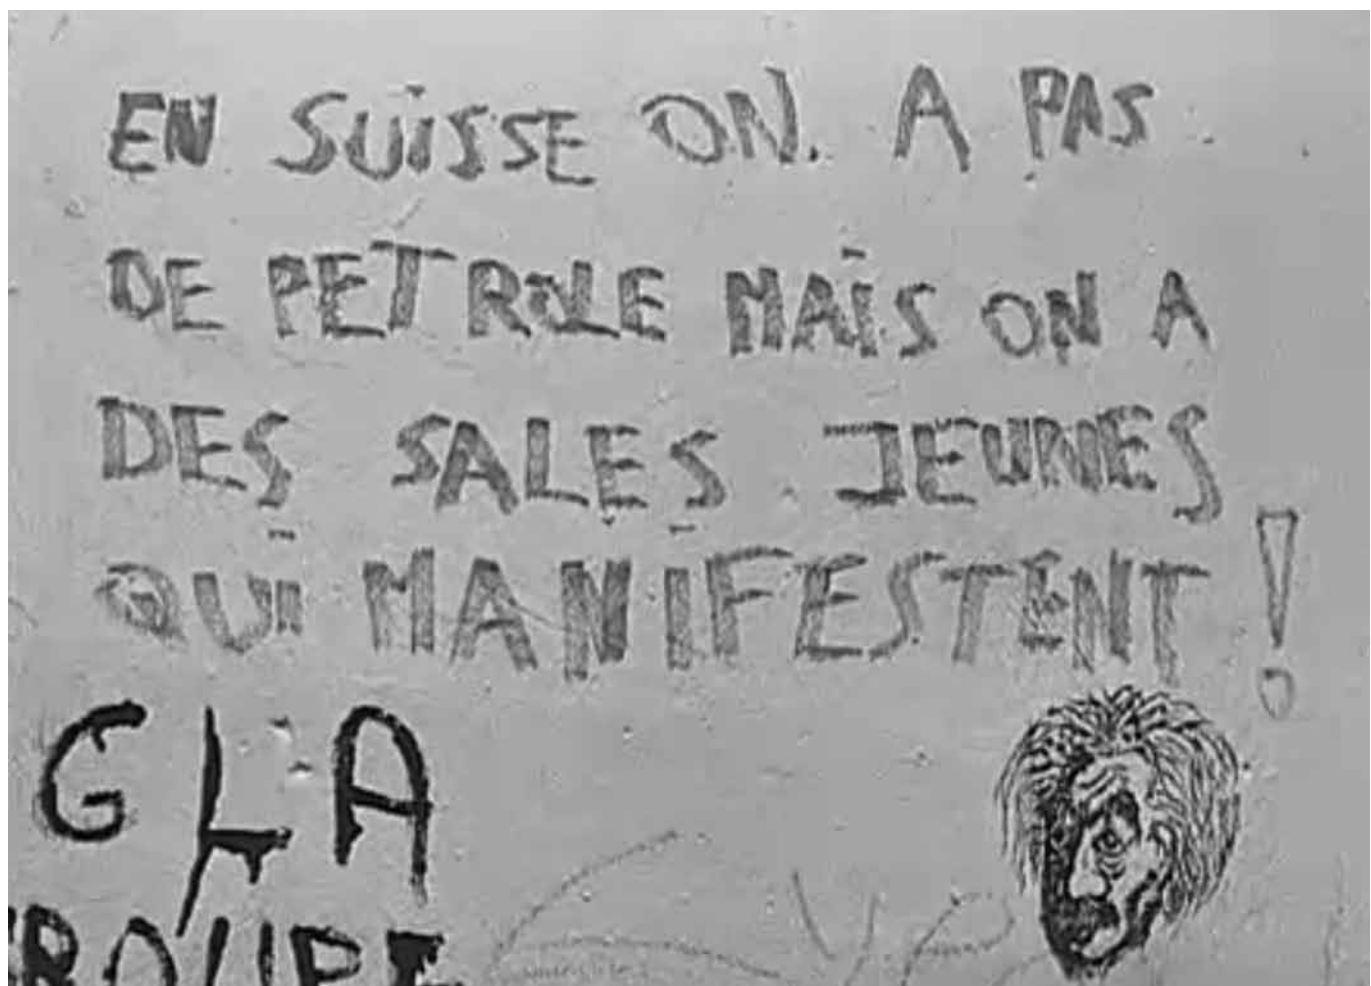 EN SUISSE ON. A PAS
DE PETROLE MAIS ON A
DES SALES JEUNES
QUI MANIFESTENT !
GLA